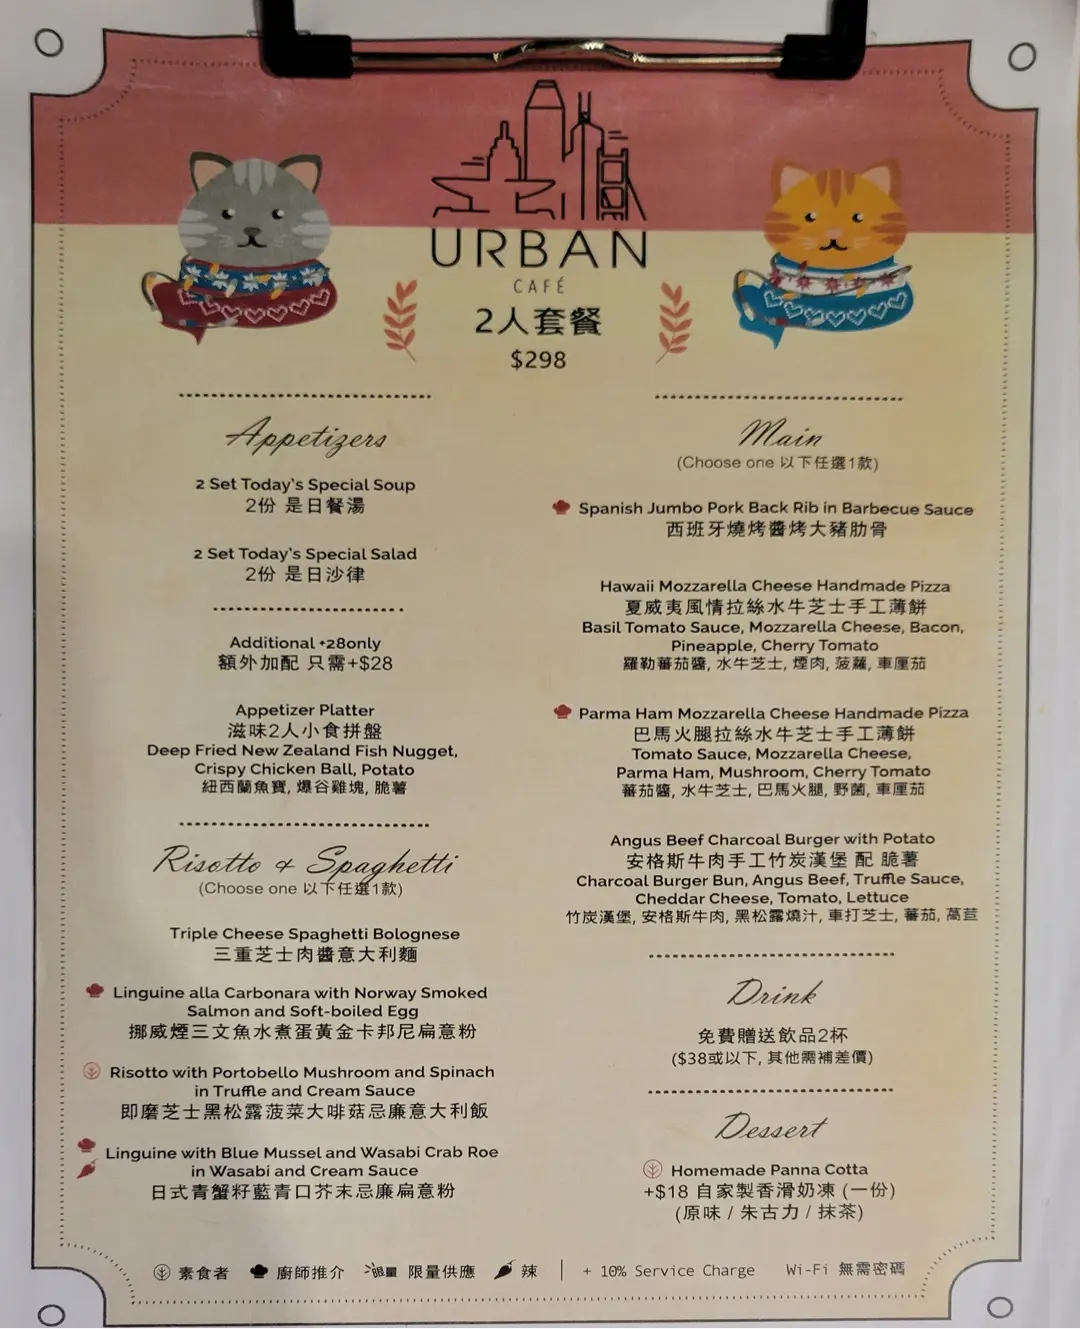 URBAN
CAFÉ
2人套餐
$298
Appetizers
2 Set Today's Special Soup
2份 是日餐湯
2 Set Today's Special Salad
2份 是日沙律
Additional +28only
額外加配 只需+$28
Appetizer Platter
滋味2人小食拼盤
Deep Fried New Zealand Fish Nugget,
Crispy Chicken Ball, Potato
紐西蘭魚寶, 爆谷雞塊, 脆薯
Risotto & Spaghetti
(Choose one 以下任選1款)
Triple Cheese Spaghetti Bolognese
三重芝士肉醬意大利麵
Linguine alla Carbonara with Norway Smoked
Salmon and Soft-boiled Egg
挪威煙三文魚水煮蛋黃金卡邦尼扁意粉
Risotto with Portobello Mushroom and Spinach
in Truffle and Cream Sauce
即磨芝士黑松露菠菜大啡菇忌廉意大利飯
Linguine with Blue Mussel and Wasabi Crab Roe
in Wasabi and Cream Sauce
日式青蟹籽藍青口芥末忌廉扁意粉
Main
(Choose one 以下任選1款)
Spanish Jumbo Pork Back Rib in Barbecue Sauce
西班牙燒烤醬烤大豬肋骨
Hawaii Mozzarella Cheese Handmade Pizza
夏威夷風情拉絲水牛芝士手工薄餅
Basil Tomato Sauce, Mozzarella Cheese, Bacon,
Pineapple, Cherry Tomato
羅勒蕃茄醬, 水牛芝士, 煙肉, 菠蘿, 車厘茄
Parma Ham Mozzarella Cheese Handmade Pizza
巴馬火腿拉絲水牛芝士手工薄餅
Tomato Sauce, Mozzarella Cheese,
Parma Ham, Mushroom, Cherry Tomato
蕃茄醬, 水牛芝士, 巴馬火腿, 野菌, 車厘茄
Angus Beef Charcoal Burger with Potato
安格斯牛肉手工竹炭漢堡 配 脆薯
Charcoal Burger Bun, Angus Beef, Truffle Sauce,
Cheddar Cheese, Tomato, Lettuce
竹炭漢堡, 安格斯牛肉, 黑松露燒汁, 車打芝士, 蕃茄, 萵苣
Drink
免費贈送飲品2杯
($38或以下, 其他需補差價)
Dessert
Homemade Panna Cotta
+$18 自家製香滑奶凍 (一份)
(原味 / 朱古力 / 抹茶)
素食者 廚師推介 限量 限量供應 辣 | + 10% Service Charge Wi-Fi 無需密碼